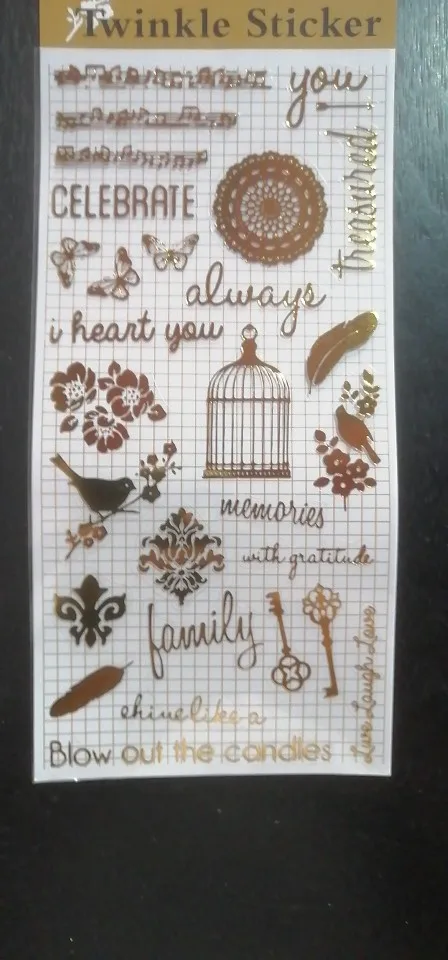 Twinkle Sticker
you
treasured
CELEBRATE
always
i heart you
memories
with gratitude
family
Live Laugh Love
shine like a
Blow out the candles